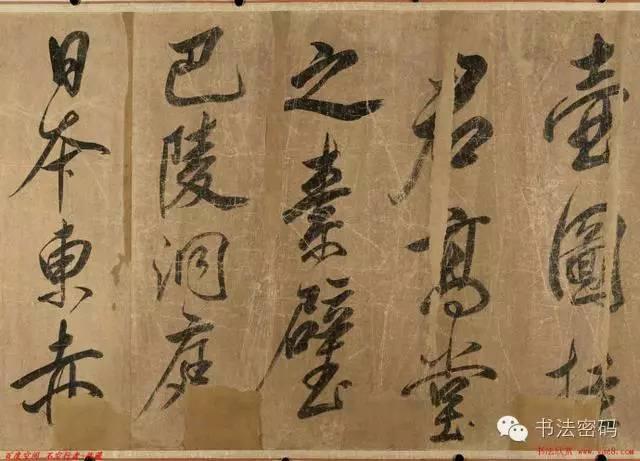 壺圖挂
君高堂
之素壁
巴陵洞庭
日本東赤
书法密码